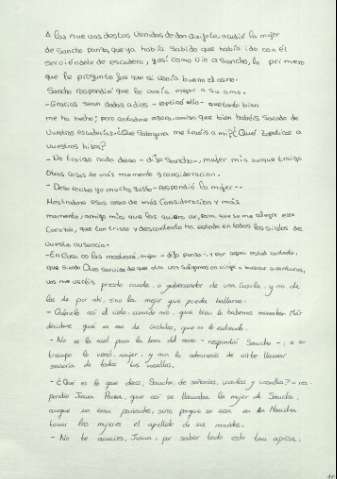 A las nuevas destas venidas de don Quijote acudió la mujer
de Sancho panza, que ya había sabido que había ido con él
sirviéndole de escudero, y así como vio a Sancho, lo primero
que le preguntó fue que si venía bueno el asno.
Sancho respondió que lo venía mejor q su amo.
-Gracias sean dadas a dios- replicó ella- que tanto bien
me ha hecho; pero contadme ahora, amigo que bien habéis sacado de
vuestras escuderías. ¿Que saboyana me traéis a mí? ¿Qué zapaticos a
vuestros hijos?
- No traigo nada deso - dijo Sancho-, mujer mía aunque traigo
Otras cosas de más momento y consideración.
- Deso recibo yo mucho gusto - respondió la mujer -.
Mostradme esas cosas de más consideración y más
momento, amigo mío que las quiero ver, para que se me alegre este
corazón, que tan triste y descontento ha estado en todos los siglos de
vuestra ausencia-
-En casa os las mostraré, mujer - dijo panza -, y por agora estad contenta,
que siendo Dios servido de que otra vez salgamos en viaje a buscar aventuras,
vos me veréis presto conde, o gobernador de una ínsula, y no de
las de por ahí, sino la mejor que pueda hallarse.
- Quiéralo así el cielo, marido mío, que bien lo habemos menester. Mas
decidme qué es eso de ínsulas, que no lo entiendo.
- No es la miel para la boca del asno - respondió Sancho -; a su
tiempo lo verás, mujer, y aun te admirarás de oírte llamar
señoría de todos tus vasallos.
- ¿Que es lo que decís, Sancho de señorías, ínsulas y vasallos? - res
pondió Juana Panza, que así se llamaba la mujer de Sancho,
aunque no eran parientes, sino porque se usa en la Mancha
tomar las mujeres el apellido de sus maridos.
- No te acucies, Juana, por saber todo esto tan apriesa;